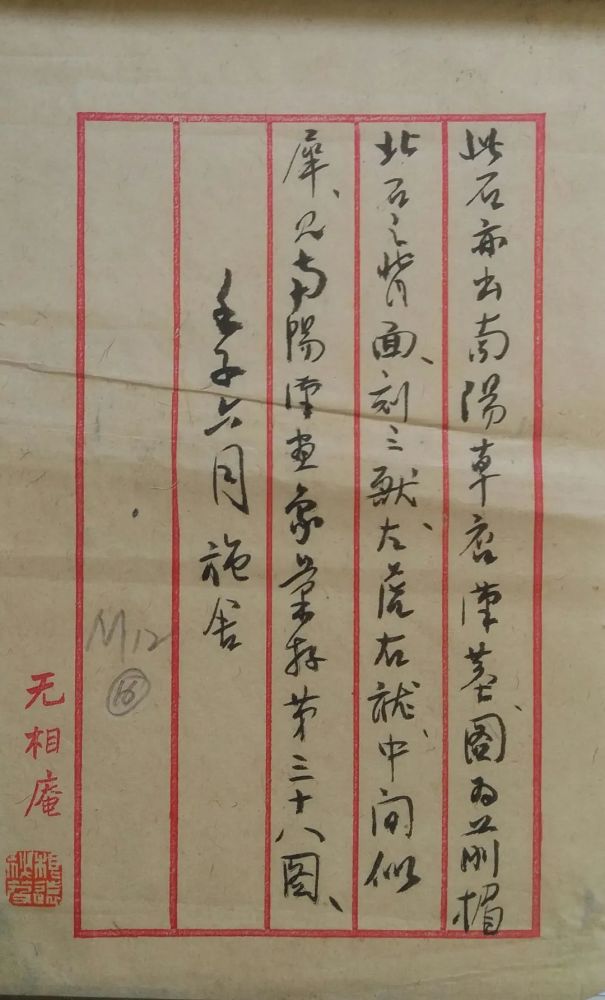 此石亦出南陽草店漢墓、圖为前楣
北石之背面、刻三獸、左虎右龍、中间似
犀、见南陽漢畫象彙存第三十八图、
壬子六月 施舍
M12
16
无相庵